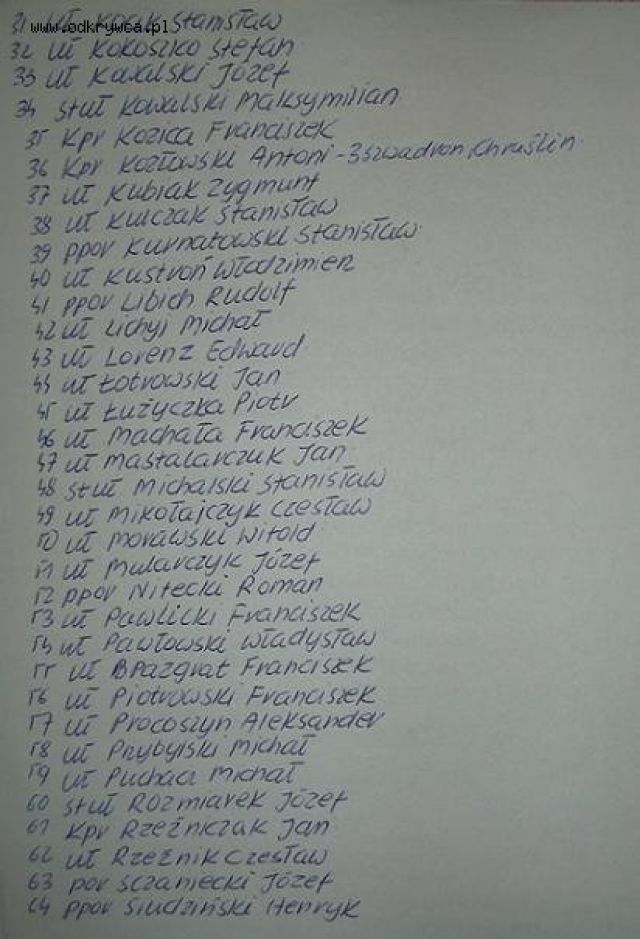 www.odkrywca.pl
31 uł Stanisław
32 uł Kokoszko Stefan
33 uł Kowalski Józef
34 stuł Kowalski Maksymilian
35 Kpr Kozica Franciszek
36 Kpr Kozłowski Antoni - 3 szwadron, Chruślin
37 uł Kubiak Zygmunt
38 uł Kulczak Stanisław
39 ppor Kurnatowski Stanisław
40 uł Kustroń Włodzimierz
41 ppor Libich Rudolf
42 uł Lichyj Michał
43 uł Lorenz Edward
44 uł Łotrowski Jan
45 uł Łużyczka Piotr
46 uł Machała Franciszek
47 uł Mastalarczuk Jan
48 stuł Michalski Stanisław
49 uł Mikołajczyk Czesław
50 uł Morawski Witold
51 uł Mularczyk Józef
52 ppor Nitecki Roman
53 uł Pawlicki Franciszek
54 uł Pawłowski Władysław
55 uł Franciszek
56 uł Piotrowski Franciszek
57 uł Procoszyn Aleksander
58 uł Przybylski Michał
59 uł Puchacz Michał
60 stuł Rozmiarek Józef
61 Kpr Rzeźniczak Jan
62 uł Rzeźnik Czesław
63 por Sczaniecki Józef
64 ppor Siudziński Henryk